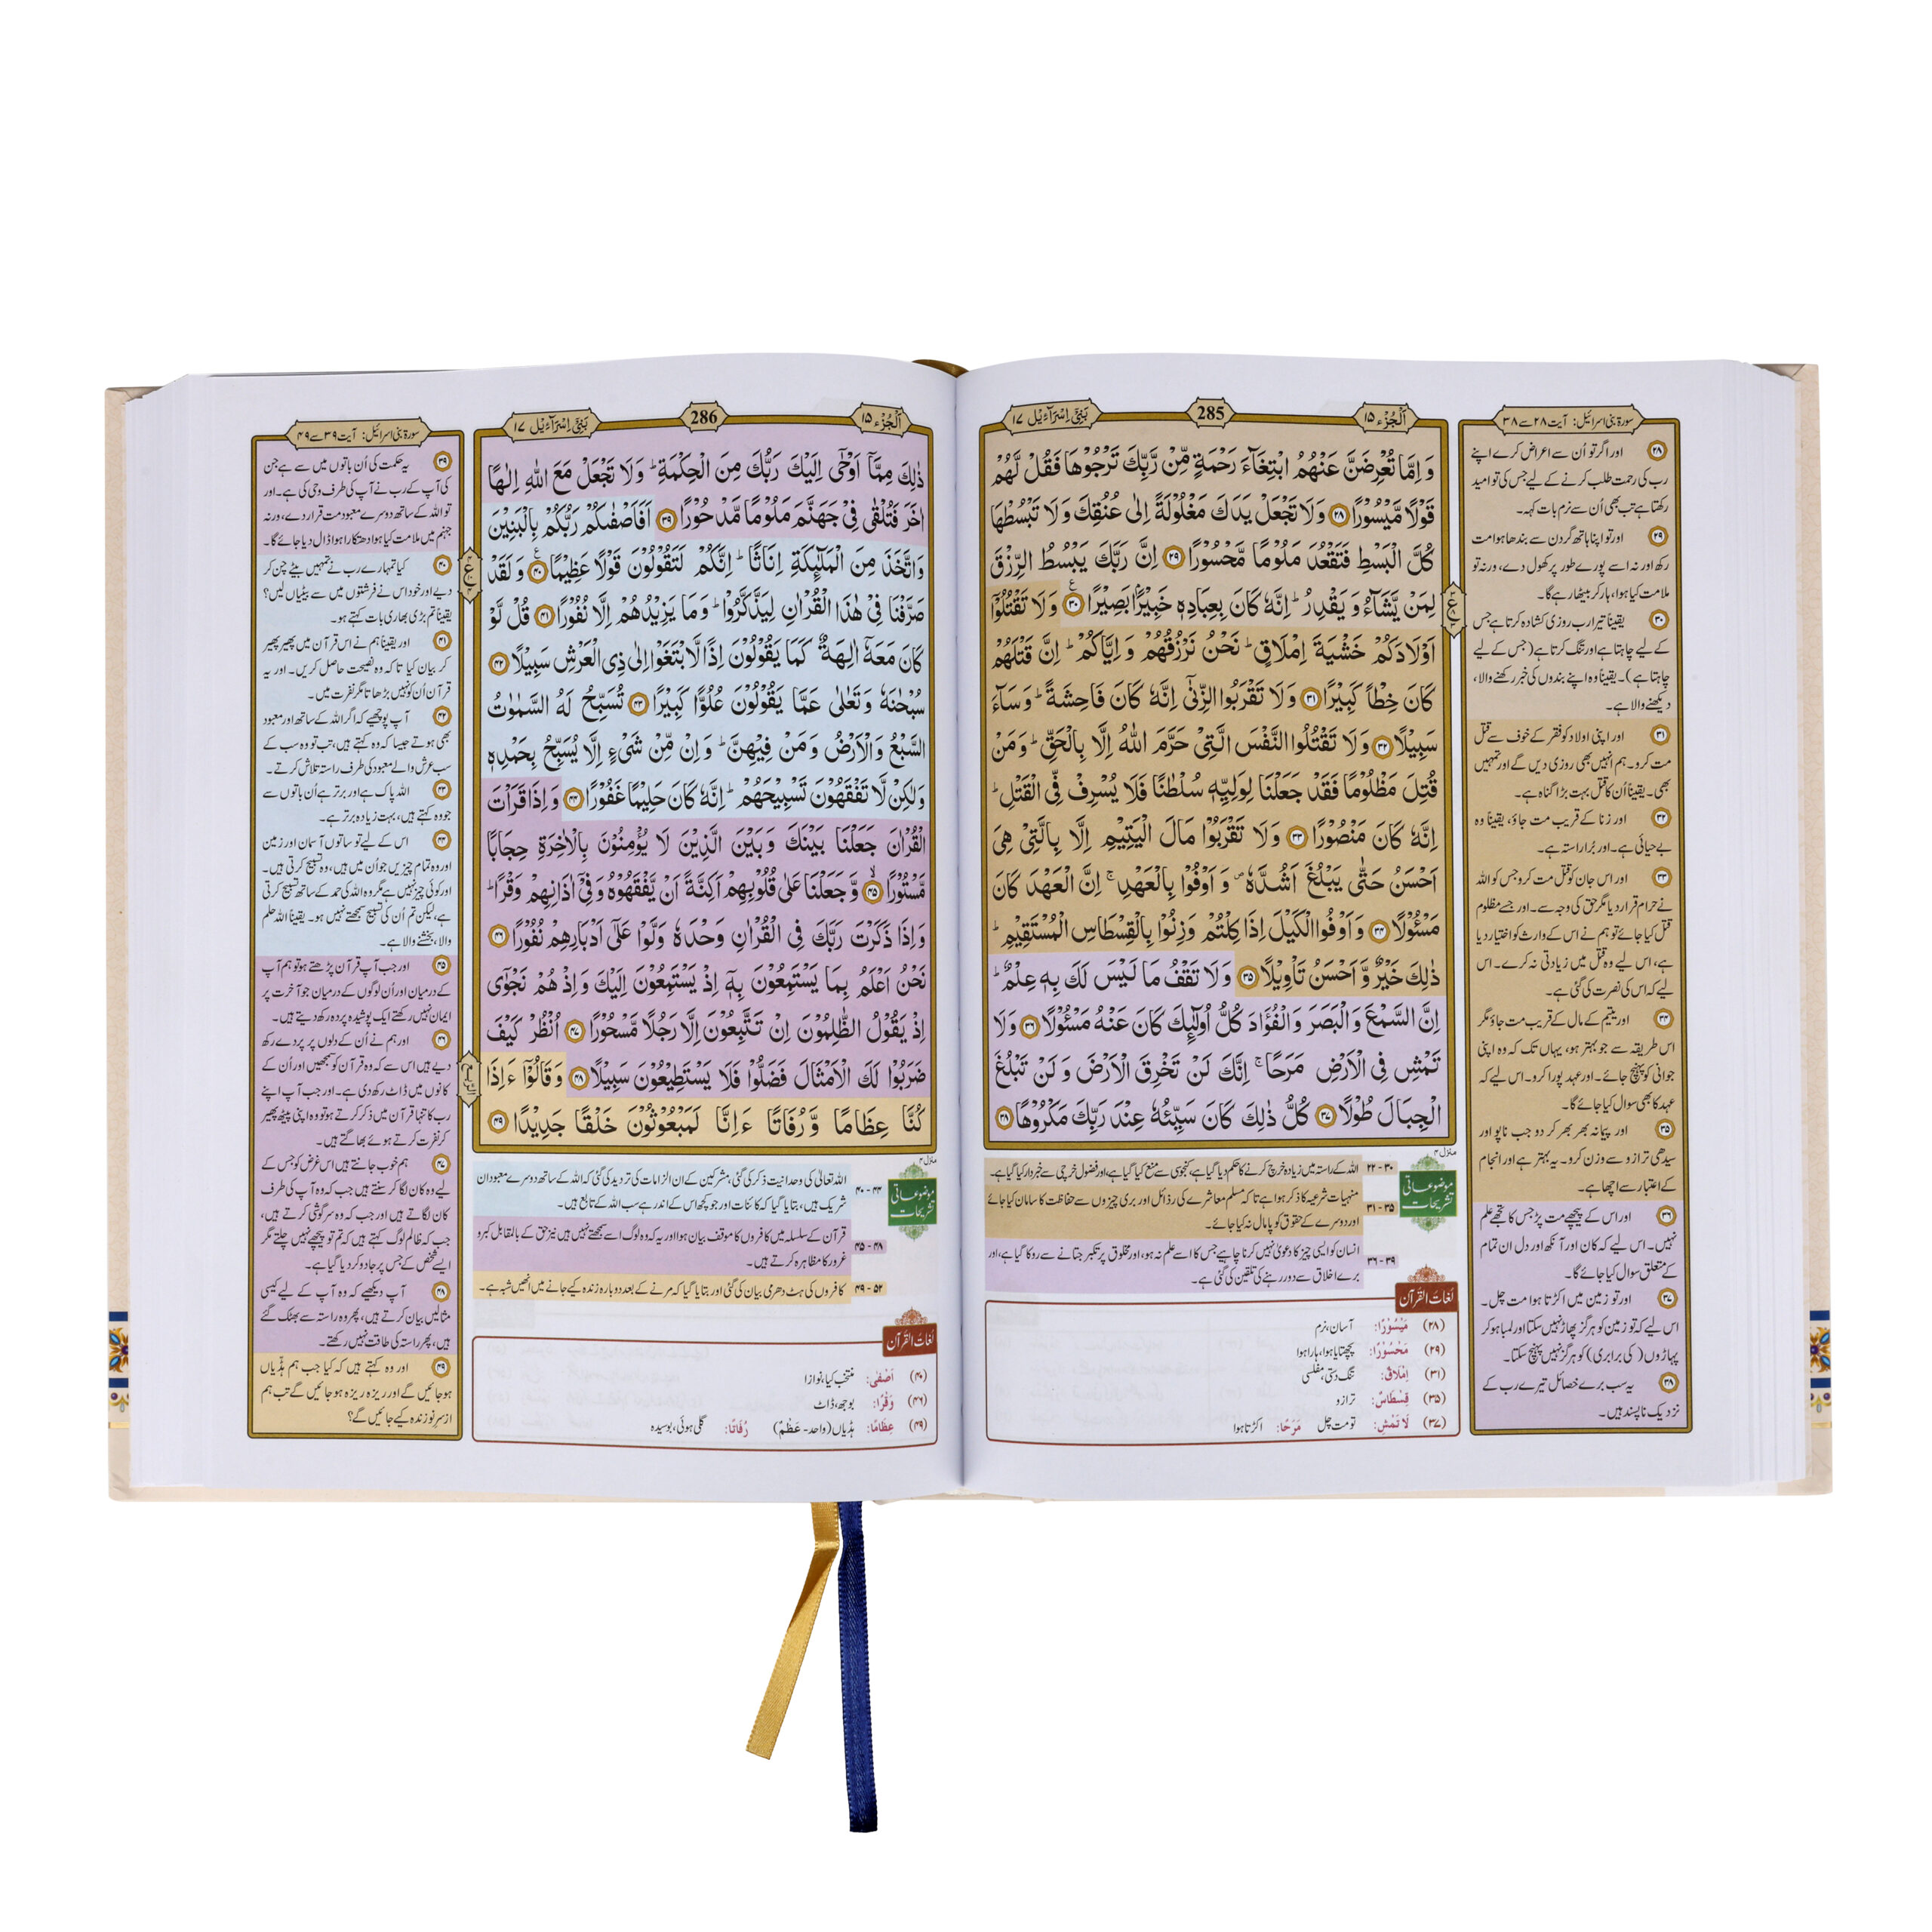 سورۃ بنی اسرائیل: آیت ۲۸ سے ۳۸
۲۸ اور اگر تو اُن سے اعراض کرے اپنے
رب کی رحمت طلب کرنے کے لیے جس کی تو امید
رکھتا ہے تب بھی اُن سے نرم بات کہہ۔
۲۹ اور تو اپنا ہاتھ گردن سے بندھا ہوا مت
رکھ اور نہ اسے پورے طور پر کھول دے، ورنہ تو
ملامت کیا ہوا، ہار کر بیٹھا رہے گا۔
۳۰ یقیناً تیرا رب روزی کشادہ کرتا ہے جس
کے لیے چاہتا ہے اور تنگ کرتا ہے (جس کے لیے
چاہتا ہے)۔ یقیناً وہ اپنے بندوں کی خبر رکھنے والا،
دیکھنے والا ہے۔
۳۱ اور اپنی اولاد کو فقر کے خوف سے قتل
مت کرو۔ ہم انہیں بھی روزی دیں گے اور تمہیں
بھی۔ یقیناً اُن کا قتل بہت بڑا گناہ ہے۔
۳۲ اور زنا کے قریب مت جاؤ، یقیناً وہ
بے حیائی ہے۔ اور بُرا راستہ ہے۔
۳۳ اور اس جان کو قتل مت کرو جس کو اللہ
نے حرام قرار دیا مگر حق کی وجہ سے۔ اور جسے مظلوم
قتل کیا جائے تو ہم نے اس کے وارث کو اختیار دیا
ہے، اس لیے وہ قتل میں زیادتی نہ کرے۔ اس
لیے کہ اس کی نصرت کی گئی ہے۔
۳۴ اور یتیم کے مال کے قریب مت جاؤ مگر
اس طریقہ سے جو بہتر ہو، یہاں تک کہ وہ اپنی
جوانی کو پہنچ جائے۔ اور عہد پورا کرو۔ اس لیے کہ
عہد کا بھی سوال کیا جائے گا۔
۳۵ اور پیمانہ بھر بھر کر دو جب ناپو اور
سیدھی ترازو سے وزن کرو۔ یہ بہتر ہے اور انجام
کے اعتبار سے اچھا ہے۔
۳۶ اور اس کے پیچھے مت پڑ جس کا تجھے علم
نہیں۔ اس لیے کہ کان اور آنکھ اور دل ان تمام
کے متعلق سوال کیا جائے گا۔
۳۷ اور تو زمین میں اکڑتا ہوا مت چل۔
اس لیے کہ تو زمین کو ہرگز پھاڑ نہیں سکتا اور لمبا ہو کر
پہاڑوں (کی برابری) کو ہرگز نہیں پہنچ سکتا۔
۳۸ یہ سب برے خصائل تیرے رب کے
نزدیک ناپسند ہیں۔
اَلْجُزْء ۱۵
285
بَنِیْٓ اِسْرَآءِیْل ۱۷
وَ اِمَّا تُعْرِضَنَّ عَنْهُمُ ابْتِغَآءَ رَحْمَةٍ مِّنْ رَّبِّكَ تَرْجُوْهَا فَقُلْ لَّهُمْ
قَوْلًا مَّيْسُوْرًا ۲۸ وَ لَا تَجْعَلْ يَدَكَ مَغْلُوْلَةً اِلٰى عُنُقِكَ وَ لَا تَبْسُطْهَا
كُلَّ الْبَسْطِ فَتَقْعُدَ مَلُوْمًا مَّحْسُوْرًا ۲۹ اِنَّ رَبَّكَ يَبْسُطُ الرِّزْقَ
لِمَنْ يَّشَآءُ وَ يَقْدِرُ ؕ اِنَّهٗ كَانَ بِعِبَادِهٖ خَبِيْرًۢا بَصِيْرًا ۳۰ وَ لَا تَقْتُلُوْٓا
اَوْلَادَكُمْ خَشْيَةَ اِمْلَاقٍ ؕ نَحْنُ نَرْزُقُهُمْ وَ اِيَّاكُمْ ؕ اِنَّ قَتْلَهُمْ
كَانَ خِطْاً كَبِيْرًا ۳۱ وَ لَا تَقْرَبُوا الزِّنٰٓى اِنَّهٗ كَانَ فَاحِشَةً ؕ وَ سَآءَ
سَبِيْلًا ۳۲ وَ لَا تَقْتُلُوا النَّفْسَ الَّتِيْ حَرَّمَ اللّٰهُ اِلَّا بِالْحَقِّ ؕ وَ مَنْ
قُتِلَ مَظْلُوْمًا فَقَدْ جَعَلْنَا لِوَلِيِّهٖ سُلْطٰنًا فَلَا يُسْرِفْ فِّي الْقَتْلِ ؕ
اِنَّهٗ كَانَ مَنْصُوْرًا ۳۳ وَ لَا تَقْرَبُوْا مَالَ الْيَتِيْمِ اِلَّا بِالَّتِيْ هِيَ
اَحْسَنُ حَتّٰى يَبْلُغَ اَشُدَّهٗ ۪ وَ اَوْفُوْا بِالْعَهْدِ ۚ اِنَّ الْعَهْدَ كَانَ
مَسْـُٔوْلًا ۳۴ وَ اَوْفُوا الْكَيْلَ اِذَا كِلْتُمْ وَ زِنُوْا بِالْقِسْطَاسِ الْمُسْتَقِيْمِ ؕ
ذٰلِكَ خَيْرٌ وَّ اَحْسَنُ تَاْوِيْلًا ۳۵ وَ لَا تَقْفُ مَا لَيْسَ لَكَ بِهٖ عِلْمٌ ؕ
اِنَّ السَّمْعَ وَ الْبَصَرَ وَ الْفُؤَادَ كُلُّ اُولٰٓىِٕكَ كَانَ عَنْهُ مَسْـُٔوْلًا ۳۶ وَ لَا
تَمْشِ فِي الْاَرْضِ مَرَحًا ۚ اِنَّكَ لَنْ تَخْرِقَ الْاَرْضَ وَ لَنْ تَبْلُغَ
الْجِبَالَ طُوْلًا ۳۷ كُلُّ ذٰلِكَ كَانَ سَيِّئُهٗ عِنْدَ رَبِّكَ مَكْرُوْهًا ۳۸
منزل ۴
موضوعاتی
تشریحات
۲۲ - ۳۰ اللہ کے راستہ میں زیادہ خرچ کرنے کا حکم دیا گیا ہے، کنجوسی سے منع کیا گیا ہے، اور فضول خرچی سے خبردار کیا گیا ہے۔
۳۱ - ۳۵ منہیات شرعیہ کا ذکر ہوا ہے تاکہ مسلم معاشرے کی رذائل اور بری چیزوں سے حفاظت کا سامان کیا جائے
اور دوسرے کے حقوق کو پامال نہ کیا جائے۔
۳۶ - ۳۹ انسان کو ایسی چیز کا دعویٰ نہیں کرنا چاہیے جس کا اسے علم نہ ہو، اور مخلوق پر تکبر جتانے سے روکا گیا ہے، اور
برے اخلاق سے دور رہنے کی تلقین کی گئی ہے۔
لغات القرآن
(۲۸) مَيْسُوْرًا: آسان، نرم
(۲۹) مَحْسُوْرًا: پچھتایا ہوا، ہارا ہوا
(۳۱) اِمْلَاقٍ: تنگ دستی، مفلسی
(۳۵) قِسْطَاسٌ: ترازو
(۳۷) لَا تَمْشِ: تو مت چل مَرَحًا: اکڑتا ہوا
اَلْجُزْء ۱۵
286
بَنِیْٓ اِسْرَآءِیْل ۱۷
ذٰلِكَ مِمَّآ اَوْحٰٓى اِلَيْكَ رَبُّكَ مِنَ الْحِكْمَةِ ؕ وَ لَا تَجْعَلْ مَعَ اللّٰهِ اِلٰهًا
اٰخَرَ فَتُلْقٰى فِيْ جَهَنَّمَ مَلُوْمًا مَّدْحُوْرًا ۳۹ اَفَاَصْفٰىكُمْ رَبُّكُمْ بِالْبَنِيْنَ
وَ اتَّخَذَ مِنَ الْمَلٰٓىِٕكَةِ اِنَاثًا ؕ اِنَّكُمْ لَتَقُوْلُوْنَ قَوْلًا عَظِيْمًا ۴۰ وَ لَقَدْ
صَرَّفْنَا فِيْ هٰذَا الْقُرْاٰنِ لِيَذَّكَّرُوْا ؕ وَ مَا يَزِيْدُهُمْ اِلَّا نُفُوْرًا ۴۱ قُلْ لَّوْ
كَانَ مَعَهٗٓ اٰلِهَةٌ كَمَا يَقُوْلُوْنَ اِذًا لَّابْتَغَوْا اِلٰى ذِي الْعَرْشِ سَبِيْلًا ۴۲
سُبْحٰنَهٗ وَ تَعٰلٰى عَمَّا يَقُوْلُوْنَ عُلُوًّا كَبِيْرًا ۴۳ تُسَبِّحُ لَهُ السَّمٰوٰتُ
السَّبْعُ وَ الْاَرْضُ وَ مَنْ فِيْهِنَّ ؕ وَ اِنْ مِّنْ شَيْءٍ اِلَّا يُسَبِّحُ بِحَمْدِهٖ
وَ لٰكِنْ لَّا تَفْقَهُوْنَ تَسْبِيْحَهُمْ ؕ اِنَّهٗ كَانَ حَلِيْمًا غَفُوْرًا ۴۴ وَ اِذَا قَرَاْتَ
الْقُرْاٰنَ جَعَلْنَا بَيْنَكَ وَ بَيْنَ الَّذِيْنَ لَا يُؤْمِنُوْنَ بِالْاٰخِرَةِ حِجَابًا
مَّسْتُوْرًا ۴۵ وَّ جَعَلْنَا عَلٰى قُلُوْبِهِمْ اَكِنَّةً اَنْ يَّفْقَهُوْهُ وَ فِيْٓ اٰذَانِهِمْ وَقْرًا ؕ
وَ اِذَا ذَكَرْتَ رَبَّكَ فِي الْقُرْاٰنِ وَحْدَهٗ وَلَّوْا عَلٰٓى اَدْبَارِهِمْ نُفُوْرًا ۴۶
نَحْنُ اَعْلَمُ بِمَا يَسْتَمِعُوْنَ بِهٖٓ اِذْ يَسْتَمِعُوْنَ اِلَيْكَ وَ اِذْ هُمْ نَجْوٰٓى
اِذْ يَقُوْلُ الظّٰلِمُوْنَ اِنْ تَتَّبِعُوْنَ اِلَّا رَجُلًا مَّسْحُوْرًا ۴۷ اُنْظُرْ كَيْفَ
ضَرَبُوْا لَكَ الْاَمْثَالَ فَضَلُّوْا فَلَا يَسْتَطِيْعُوْنَ سَبِيْلًا ۴۸ وَ قَالُوْٓا ءَاِذَا
كُنَّا عِظَامًا وَّ رُفَاتًا ءَاِنَّا لَمَبْعُوْثُوْنَ خَلْقًا جَدِيْدًا ۴۹
منزل ۴
موضوعاتی
تشریحات
۴۰ - ۴۴ اللہ تعالیٰ کی وحدانیت ذکر کی گئی، مشرکین کے ان الزامات کی تردید کی گئی کہ اللہ کے ساتھ دوسرے معبودان
شریک ہیں، بتایا گیا کہ کائنات اور جو کچھ اس کے اندر ہے سب اللہ کے تابع ہیں۔
۴۵ - ۴۸ قرآن کے سلسلہ میں کافروں کا موقف بیان ہوا اور یہ کہ وہ لوگ اسے سمجھتے نہیں ہیں نیز حق کے بالمقابل کبر و
غرور کا مظاہرہ کرتے ہیں۔
۴۹ - ۵۲ کافروں کی ہٹ دھرمی بیان کی گئی اور بتایا گیا کہ مرنے کے بعد دوبارہ زندہ کیے جانے میں انھیں شبہ ہے۔
لغات القرآن
(۴۰) اَصْفٰى: منتخب کیا، نوازا
(۴۶) وَقْرًا: بوجھ، ڈاٹ
(۴۹) عِظَامًا: ہڈیاں (واحد- عَظْمٌ) رُفَاتًا: گلی ہوئی، بوسیدہ
سورۃ بنی اسرائیل: آیت ۳۹ سے ۴۹
۳۹ یہ حکمت کی اُن باتوں میں سے ہے جن
کی آپ کے رب نے آپ کی طرف وحی کی ہے۔ اور
تو اللہ کے ساتھ دوسرے معبود مت قرار دے، ورنہ
جہنم میں ملامت کیا ہوا دھتکارا ہوا ڈال دیا جائے گا۔
۴۰ کیا تمہارے رب نے تمہیں بیٹے چن کر
دیے اور خود اس نے فرشتوں میں سے بیٹیاں لیں؟
یقیناً تم بڑی بھاری بات کہتے ہو۔
۴۱ اور یقیناً ہم نے اس قرآن میں پھیر پھیر
کر بیان کیا تاکہ وہ نصیحت حاصل کریں۔ اور یہ
قرآن اُن کو نہیں بڑھاتا مگر نفرت میں۔
۴۲ آپ پوچھیے کہ اگر اللہ کے ساتھ اور معبود
بھی ہوتے جیسا کہ وہ کہتے ہیں، تب تو وہ سب کے
سب عرش والے معبود کی طرف راستہ تلاش کرتے۔
۴۳ اللہ پاک ہے اور برتر ہے اُن باتوں سے
جو وہ کہتے ہیں، بہت زیادہ برتر ہے۔
۴۴ اس کے لیے تو ساتوں آسمان اور زمین
اور وہ تمام چیزیں جو اُن میں ہیں، وہ تسبیح کرتی ہیں۔
اور کوئی چیز نہیں ہے مگر وہ اللہ کی حمد کے ساتھ تسبیح کرتی
ہے، لیکن تم اُن کی تسبیح سمجھتے نہیں ہو۔ یقیناً اللہ حلم
والا، بخشنے والا ہے۔
۴۵ اور جب آپ قرآن پڑھتے ہو تو ہم آپ
کے درمیان اور اُن لوگوں کے درمیان جو آخرت پر
ایمان نہیں رکھتے ایک پوشیدہ پردہ رکھ دیتے ہیں۔
۴۶ اور ہم نے اُن کے دلوں پر پردے رکھ
دیے ہیں اس سے کہ وہ قرآن کو سمجھیں اور اُن کے
کانوں میں ڈاٹ رکھ دی ہے۔ اور جب آپ اپنے
رب کا تنہا قرآن میں ذکر کرتے ہو تو وہ اپنی پیٹھ پھیر
کر نفرت کرتے ہوئے بھاگتے ہیں۔
۴۷ ہم خوب جانتے ہیں اس غرض کو جس کے
لیے وہ کان لگا کر سنتے ہیں جب کہ وہ آپ کی طرف
کان لگاتے ہیں اور جب کہ وہ سرگوشی کرتے ہیں،
جب کہ ظالم لوگ کہتے ہیں کہ تم تو پیچھے نہیں چلتے مگر
ایسے شخص کے جس پر جادو کر دیا گیا ہے۔
۴۸ آپ دیکھیے کہ وہ آپ کے لیے کیسی
مثالیں بیان کرتے ہیں، پھر وہ راستہ سے بھٹک گئے
ہیں، پھر راستہ کی طاقت نہیں رکھتے۔
۴۹ اور وہ کہتے ہیں کہ کیا جب ہم ہڈیاں
ہو جائیں گے اور ریزہ ریزہ ہو جائیں گے تب ہم
از سر نو زندہ کیے جائیں گے؟